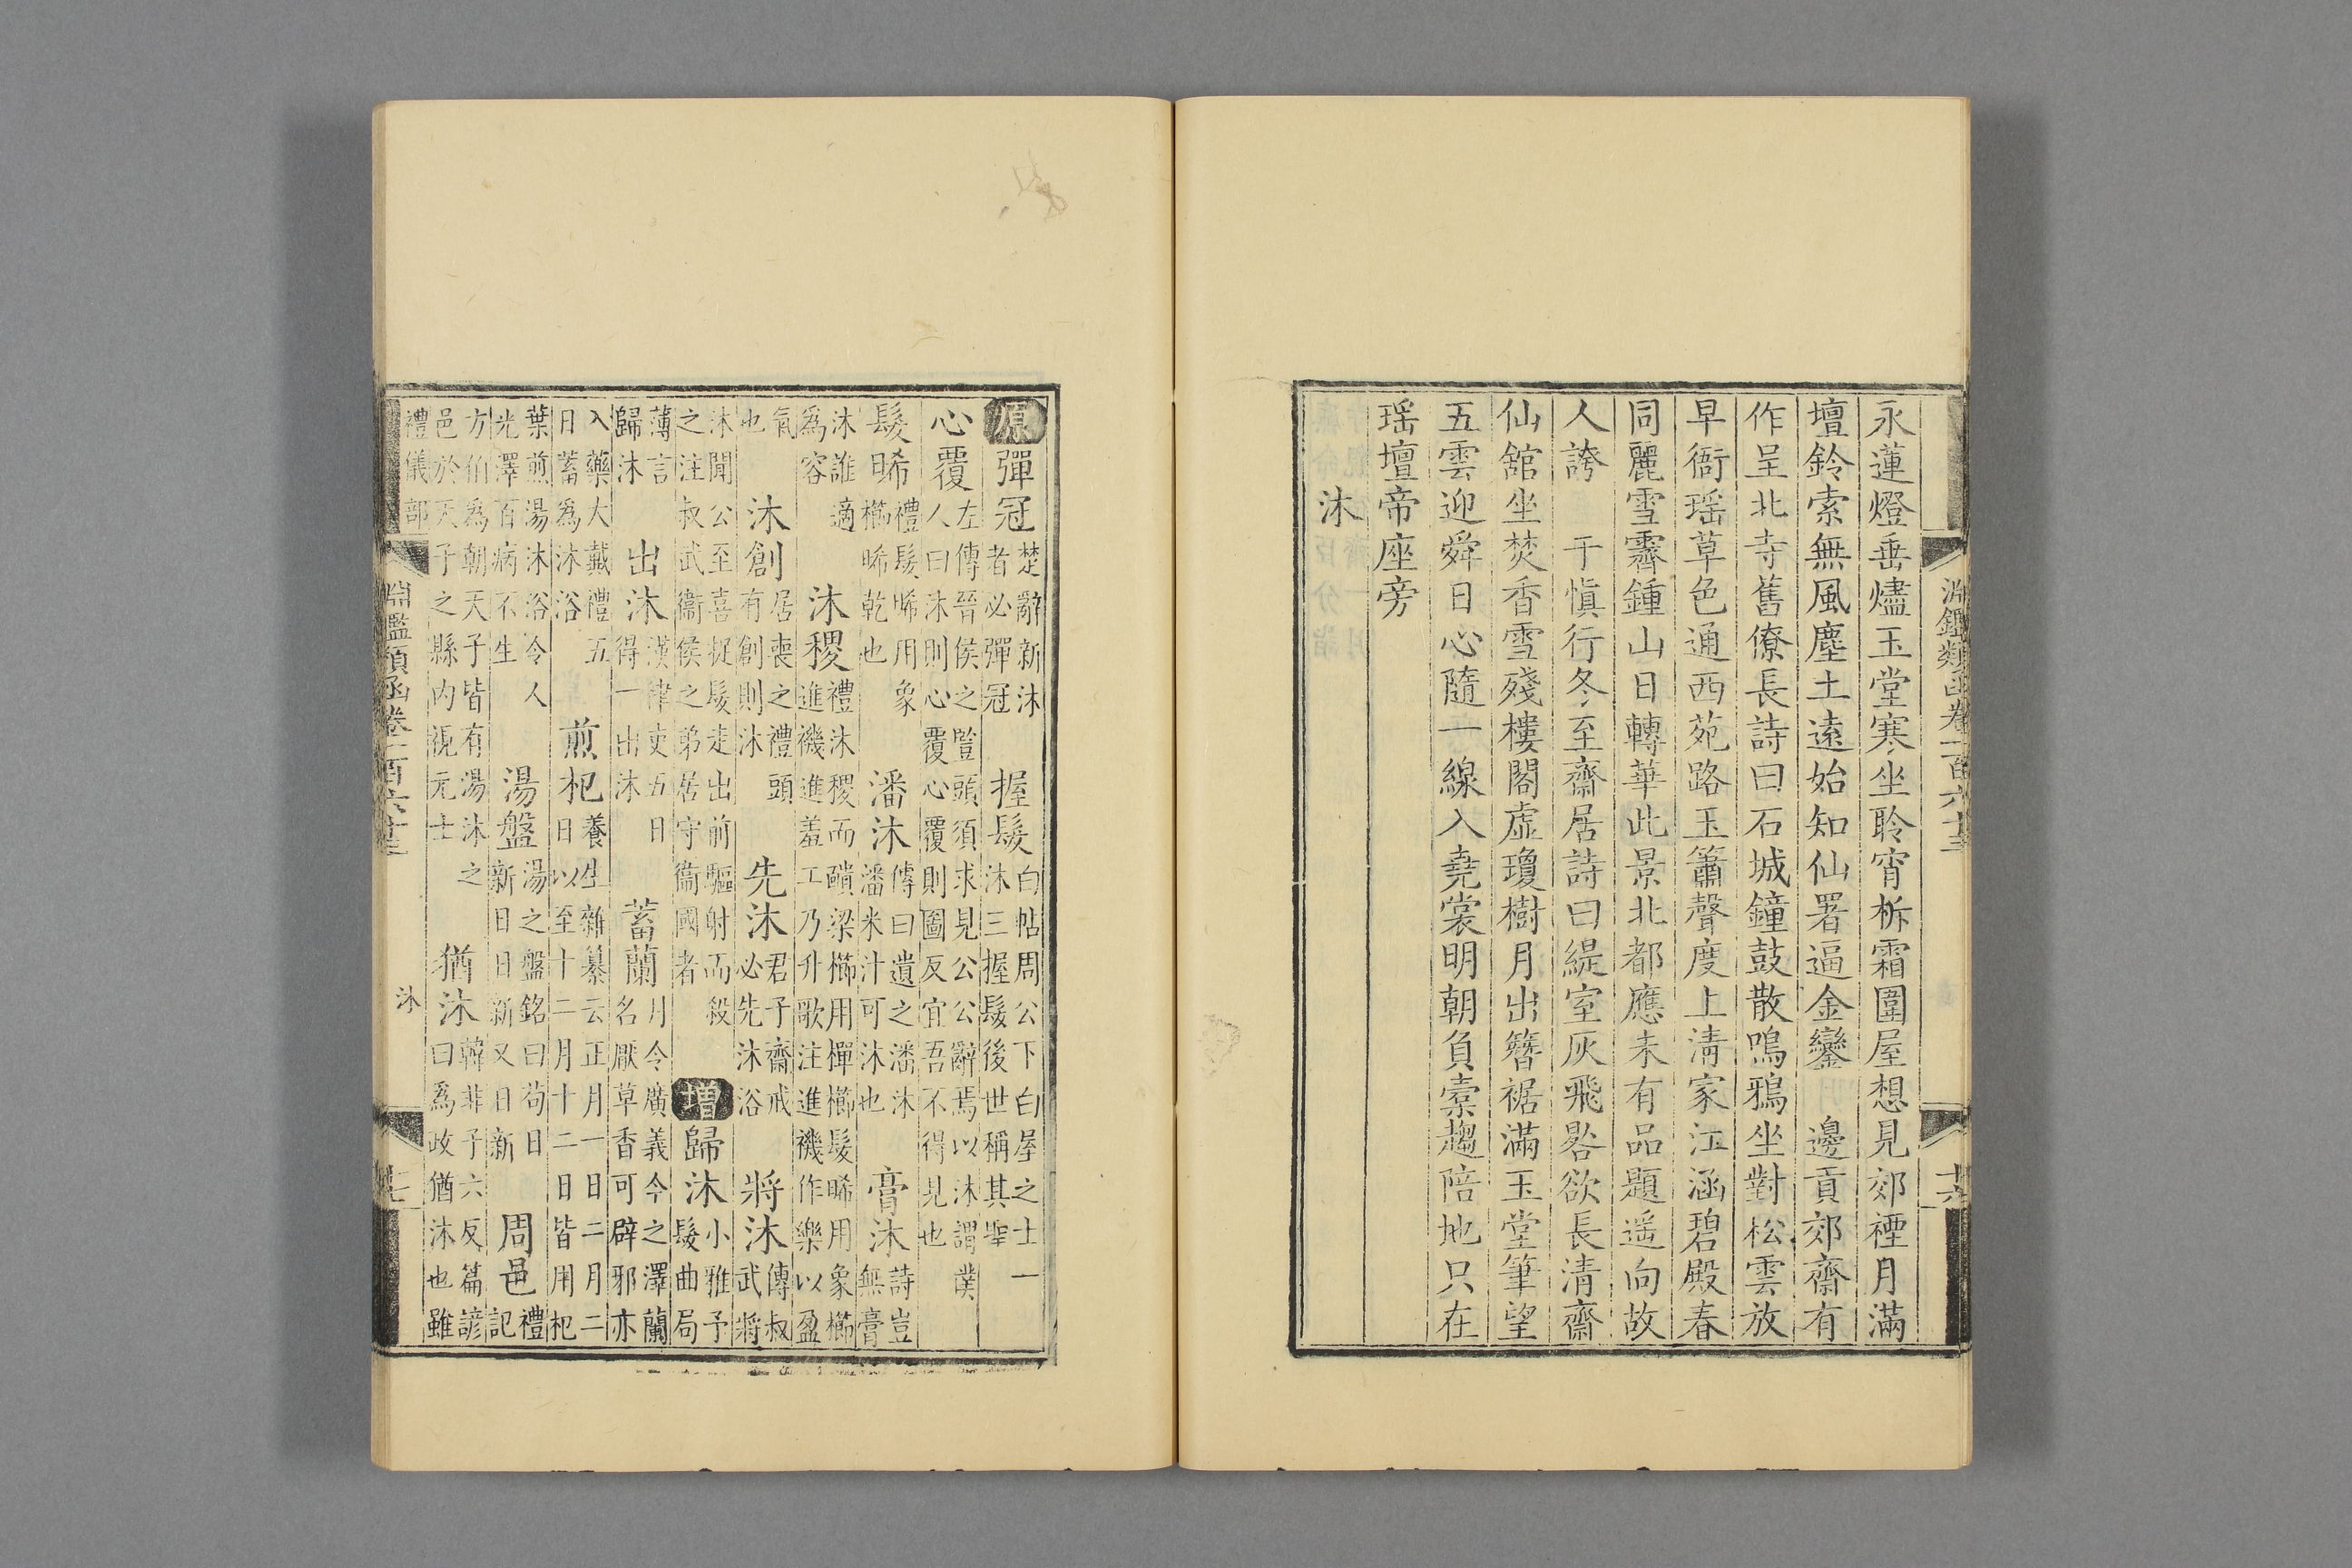 淵鑑類函卷一百六十三 十六
永蓮燈垂燼玉堂寒坐聆宵柝霜圍屋想見郊禋月滿
壇鈴索無風塵土遠始知仙署逼金鑾 邊貢郊齋有
作呈北寺舊僚長詩曰石城鐘鼓散鳴鴉坐對松雲放
早衙瑶草色通西苑路玉簫聲度上清家江涵碧殿春
同麗雪霽鍾山日轉華此景北都應未有品題遥向故
人誇 于慎行冬至齋居詩曰緹室灰飛晷欲長清齋
仙舘坐焚香雪殘樓閣虛瓊樹月出簪裾滿玉堂筆望
五雲迎舜日心隨一線入堯裳明朝負橐趨陪地只在
瑶壇帝座旁
沐
原 彈冠 楚辭新沐者必彈冠 握髮 白帖周公下白屋之士一沐三握髮後世稱其聖
心覆 左傳晉侯之豎頭須求見公公辭焉以沐謂僕人曰沐則心覆心覆則圖反宜吾不得見也
髮晞 禮髮晞用象櫛晞乾也 潘沐 傳曰遺之潘沐潘米汁可沐也 膏沐 詩豈無膏
沐誰適為容 沐稷 禮沐稷而靧粱櫛用樿櫛髮晞用象櫛進禨進羞工乃升歌注進禨作樂以盈
氣也 沐創 居喪之禮頭有創則沐 先沐 君子齋戒必先沐浴 將沐 傳叔武將
沐聞公至喜捉髮走出前驅射而殺之注叔武衞侯之弟居守衞國者 增 歸沐 小雅予髮曲局
薄言歸沐 出沐 漢律吏五日得一出沐 蓄蘭 月令廣義今之澤蘭名厭草香可辟邪亦
入藥大戴禮五日蓄為沐浴 煎杞 養生雜纂云正月一日二月二日以至十二月十二日皆用杞
葉煎湯沐浴令人光澤百病不生 湯盤 湯之盤銘曰苟日新日日新又日新 周邑 禮記
方伯為朝天子皆有湯沐之邑於天子之縣内視元士 猶沐 韓非子六反篇諺曰為政猶沐也雖
禮儀部 淵鑑類函卷一百六十三 沐 十七